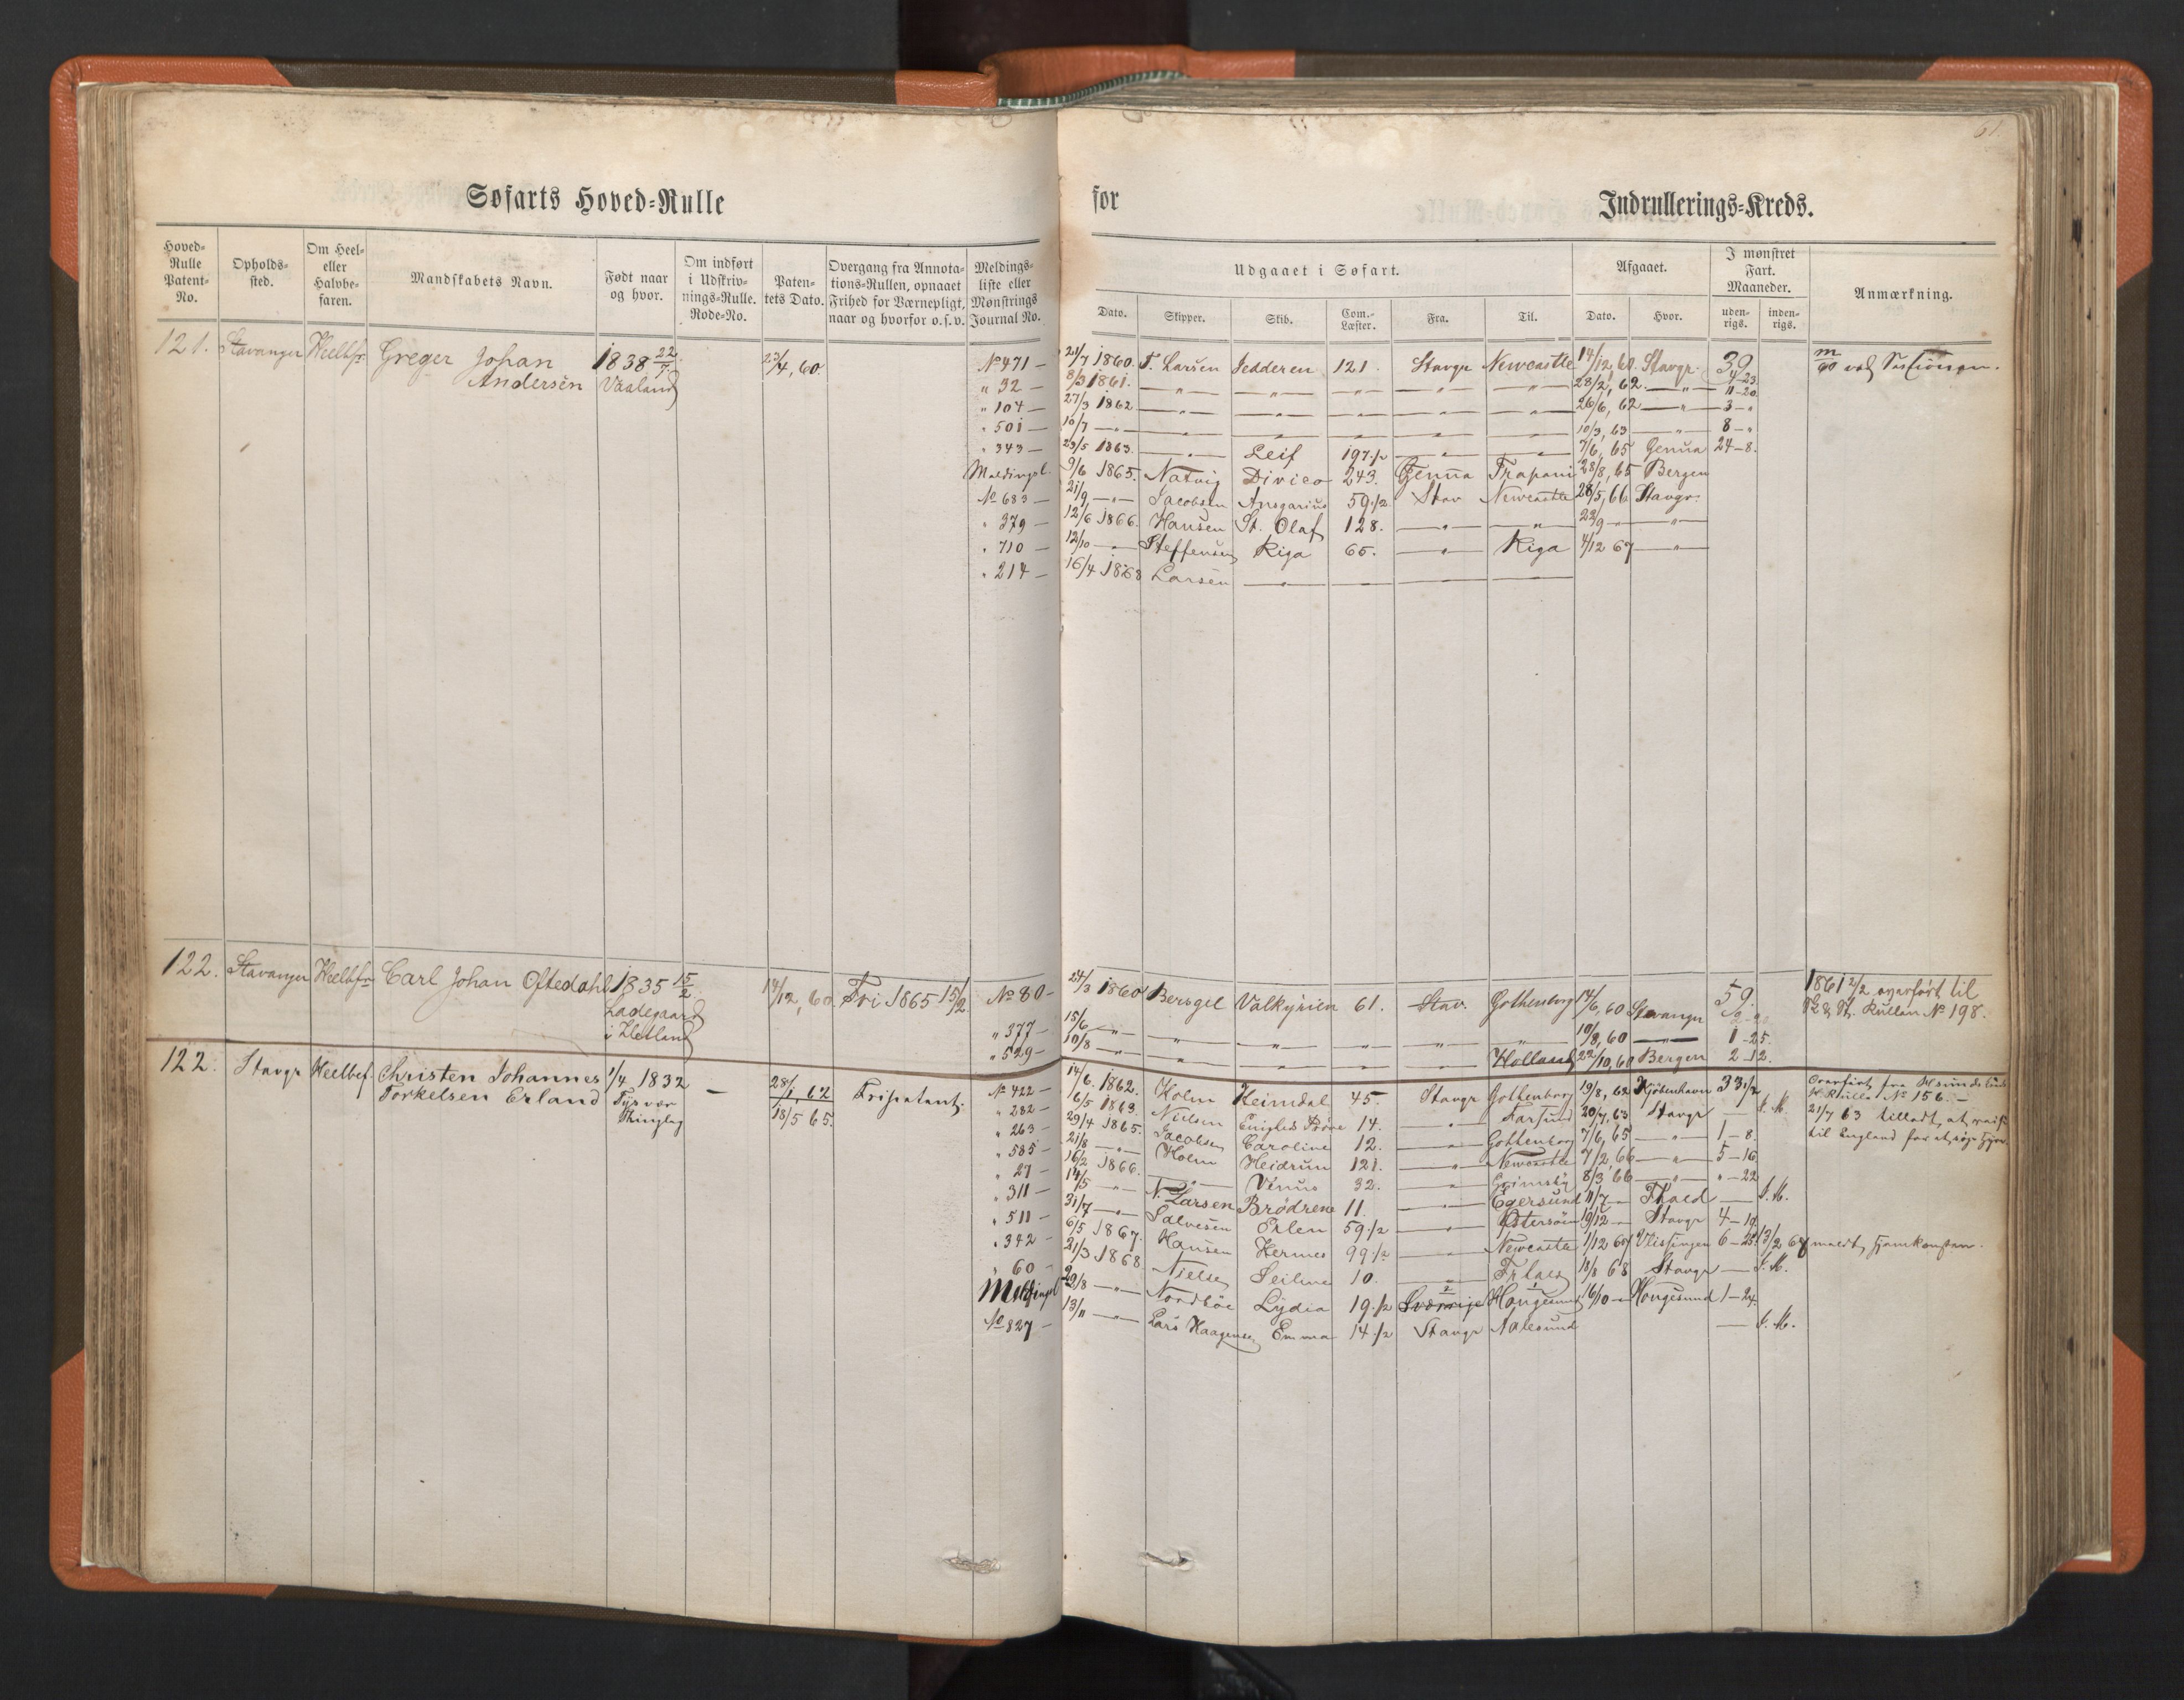 61.
Søfarts Hoved=Rulle
for
Indrullerings=Kreds.
Hoved=Rulle Patent=No.
Opholds=sted.
Om Heel= eller Halvbe=faren.
Mandskabets Navn.
Født naar og hvor.
Om indført i Udskriv=nings=Rulle. Rode=No.
Paten=tets Dato.
Overgang fra Annota=tions=Rullen, opnaaet Frihed for Værnepligt, naar og hvorfor o.s.v.
Meldings=liste eller Mønstrings Journal No.
Udgaaet i Søfart.
Afgaaet.
I mønstret Fart. Maaneder.
Anmærkning.
Dato. Skipper. Skib. Com.=Læster. Fra. Til. Dato. Hvor. uden=rigs. inden=rigs.
121. Stavanger Heelbfr Greger Johan 1838 22/7 23/4, 60. No 471 — 21/7 1860. T. Larsen Jedderen 121. Stavgr Newcastle 14/12, 60. Stavgr. 39
Andersen Vaaland " 32 — 8/3 1861. — " — — " — — " — — " — — " — 28/2, 62. — " — 11-20.
" 104 — 27/3 1862 — " — — " — — " — — " — — " — 26/6, 62 — " — 3 - "
" 501 — 10/7 — " — — " — — " — — " — — " — — " — 10/3, 63 — " — 8 - "
" 343 — 23/5 1863. — " — Leif 197 1/2 — " — — " — 7/6, 65 Genua 24-8.
Meldingsl. 9/6 1865. Natvig Divico 243. Genua Trapani 28/8, 65 Bergen
No 683 — 21/9 — " — Jacobsen Ansgarius 59 1/2 Stav Newcastle 28/5, 66 Stavgr.
" 379 — 12/6 1866. Hansen St. Olaf 128. — " — — " — 22/9 — " — — " —
" 710 — 12/10 — " — Steffensen Riga 65. — " — Riga 4/12 67 — " —
" 214 — 16/4 1868 Larsen — " — — " — — " — — " —
122. Stavanger Heelbfr Carl Johan Oftedahl 1835 15/2 14/12, 60. Fri 1865 15/2 No 80 — 24/3 1860 Valkyrien 61. Stav. Gothenborg 14/6, 60 Stavanger 59. 1861 2/2 overført til
Ladegaard " 377 — 15/6 — " — — " — — " — — " — — " — — " — 10/8, 60 — " — 1-25. Rullen No 198.
i Hetland " 529 — 10/8 — " — — " — — " — — " — — " — Holland 22/10, 60 Bergen 2-12.
122. Stavgr Heelbef. Christen Johannes 1/4 1832 — 28/1, 62 Fripatent. No 422 — 14/6. 1862. Holm Heimdal 45. Stavgr Gottenborg 19/8, 62 Kjøbenhavn 33 1/2 Overført fra
Torkelsen Erland Tysvær 18/5 65. " 282 — 6/5 1863. Nielsen Enighed 14. — " — Farsund 20/7, 63 Stavgr — S. M. Rulle No 156. —
Thinglag " 263 — 29/4 1865. Jacobsen Caroline 12. — " — Gottenborg 7/6, 65 — " — 1-8. 21/7 63 tilladt at reise
" 585 — 21/8 — " — Holm Heidrun 121. — " — Newcastle 7/2, 66 — " — 5-16 til England for at søge
" 27 — 16/2 1866. — " — Venus 32. — " — Grimsby 8/3 66 — " — " - 22
" 311 — 14/5 — " — N. Larsen Brødrene 11. — " — Egersund 11/7 — — S. M.
" 511 — 31/7 — " — Salvesen Erlen 59 1/2 — " — Østersøen 19/12 — Stavgr 4-19
" 342 — 6/5 1867. Hansen Hermes 99 1/2 — " — Newcastle 1/12 67 Vlissingen 6-25. 13/2 68 meldt hjemkomsten.
" 60 — 21/3 1868. Nielsen 10. — " — 18/8 68 Stavgr — S. M.
Meldingsl 29/8 — " — Nordbøe Lydia 19 1/2 Sverrige Hougesund 16/10 — Hougesund 1-24.
No 827 — 13/11 — " — Lars Haagensen Emma 14 1/2 Stavgr Aalesund — S. M.